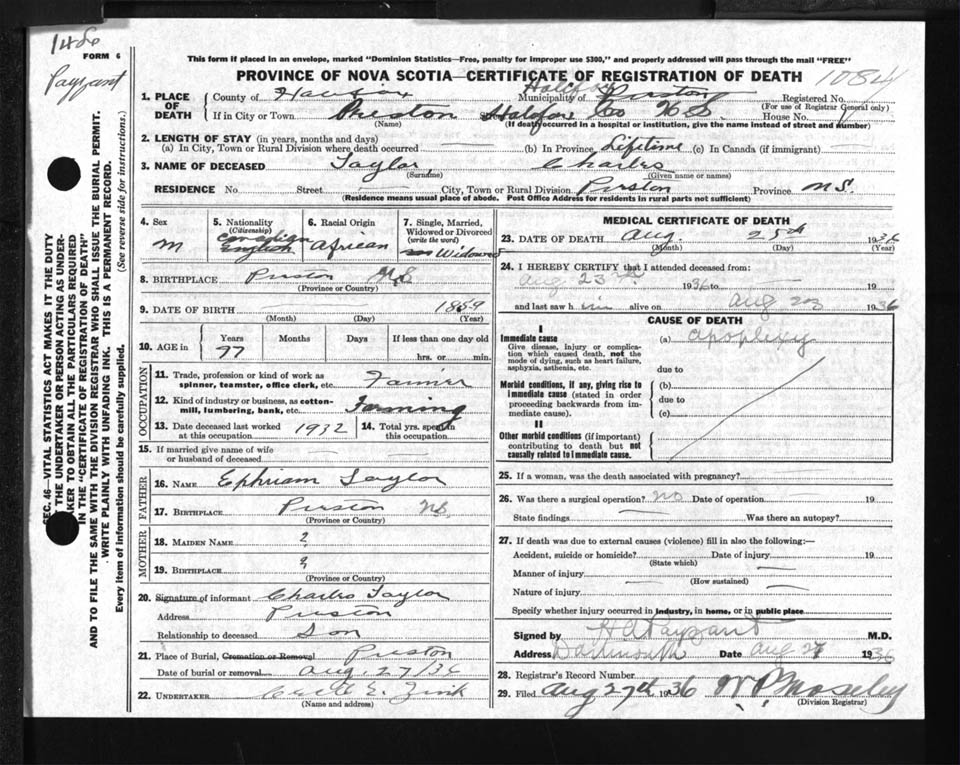 148
FORM 6
Payzant
This form if placed in an envelope, marked "Dominion Statistics—Free, penalty for improper use $300," and properly addressed will pass through the mail "FREE"
PROVINCE OF NOVA SCOTIA—CERTIFICATE OF REGISTRATION OF DEATH
1084
1. PLACE OF DEATH
County of Halifax Municipality of Halifax Preston Registered No.
(For use of Registrar General only)
If in City or Town Preston Halifax Co N.S. House No.
(Name) (If death occurred in a hospital or institution, give the name instead of street and number)
2. LENGTH OF STAY (in years, months and days)
(a) In City, Town or Rural Division where death occurred (b) In Province Lifetime (c) In Canada (if immigrant)
3. NAME OF DECEASED Taylor Charles
(Surname) (Given name or names)
RESIDENCE No Street City, Town or Rural Division Preston Province N.S.
(Residence means usual place of abode. Post Office Address for residents in rural parts not sufficient)
4. Sex
M
5. Nationality (Citizenship)
Canadian
English
6. Racial Origin
African
7. Single, Married, Widowed or Divorced (write the word)
m Widowed
8. BIRTHPLACE Preston N.S.
(Province or Country)
9. DATE OF BIRTH 1859
(Month) (Day) (Year)
10. AGE in Years Months Days If less than one day old
97 hrs. or min.
OCCUPATION
11. Trade, profession or kind of work as spinner, teamster, office clerk, etc. Farmer
12. Kind of industry or business, as cotton-mill, lumbering, bank, etc. Farming
13. Date deceased last worked at this occupation 1932 14. Total yrs. spent in this occupation
15. If married give name of wife or husband of deceased
FATHER
16. NAME Ephriam Taylor
17. BIRTHPLACE Preston N.S.
(Province or Country)
MOTHER
18. MAIDEN NAME ?
19. BIRTHPLACE ?
(Province or Country)
20. Signature of informant Charles Taylor
Address Preston
Relationship to deceased Son
21. Place of Burial, Cremation or Removal Preston
Date of burial or removal Aug 27/36
22. UNDERTAKER E. Zink
(Name and address)
MEDICAL CERTIFICATE OF DEATH
23. DATE OF DEATH Aug. 25th 1936
(Month) (Day) (Year)
24. I HEREBY CERTIFY that I attended deceased from:
Aug 23 1936 to 19
and last saw him alive on Aug 23 1936
CAUSE OF DEATH
I
Immediate cause (a) apoplexy
Give disease, injury or complication which caused death, not the mode of dying, such as heart failure, asphyxia, asthenia, etc.
due to
Morbid conditions, if any, giving rise to immediate cause (stated in order proceeding backwards from immediate cause).
(b)
due to
(c)
II
Other morbid conditions (if important) contributing to death but not causally related to immediate cause.
25. If a woman, was the death associated with pregnancy?
26. Was there a surgical operation? no Date of operation 19
State findings Was there an autopsy?
27. If death was due to external causes (violence) fill in also the following:—
Accident, suicide or homicide? Date of injury 19
(State which)
Manner of injury
(How sustained)
Nature of injury
Specify whether injury occurred in industry, in home, or in public place
Signed by H A Payzant M.D.
Address Dartmouth Date Aug 27 1936
28. Registrar's Record Number
29. Filed Aug 27th 1936 W.P. Moseley
(Division Registrar)
SEC. 46—VITAL STATISTICS ACT MAKES IT THE DUTY
THE UNDERTAKER OR PERSON ACTING AS UNDER-
TAKER TO OBTAIN ALL THE PARTICULARS REQUIRED
IN THE "CERTIFICATE OF REGISTRATION OF DEATH"
AND TO FILE THE SAME WITH THE DIVISION REGISTRAR WHO SHALL ISSUE THE BURIAL PERMIT.
WRITE PLAINLY WITH UNFADING INK. THIS IS A PERMANENT RECORD.
Every item of information should be carefully supplied. (See reverse side for instructions.)